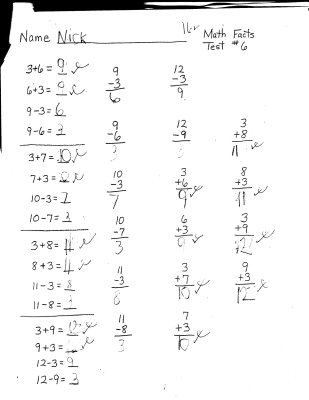 Name Nick
Math Facts
Test #6
3+6=9
6+3=9
9-3=6
9-6=3
3+7=10
7+3=
10-3=7
10-7=3
3+8=11
8+3=11
11-3=8
11-8=3
3+9=12
9+3=
12-3=9
12-9=3
9
-3
6
9
-6
3
10
-3
7
10
-7
3
11
-3
8
11
-8
3
12
-3
9
12
-9
3
3
+6
9
6
+3
9
3
+7
10
7
+3
10
3
+8
11
8
+3
11
3
+9
12
9
+3
12